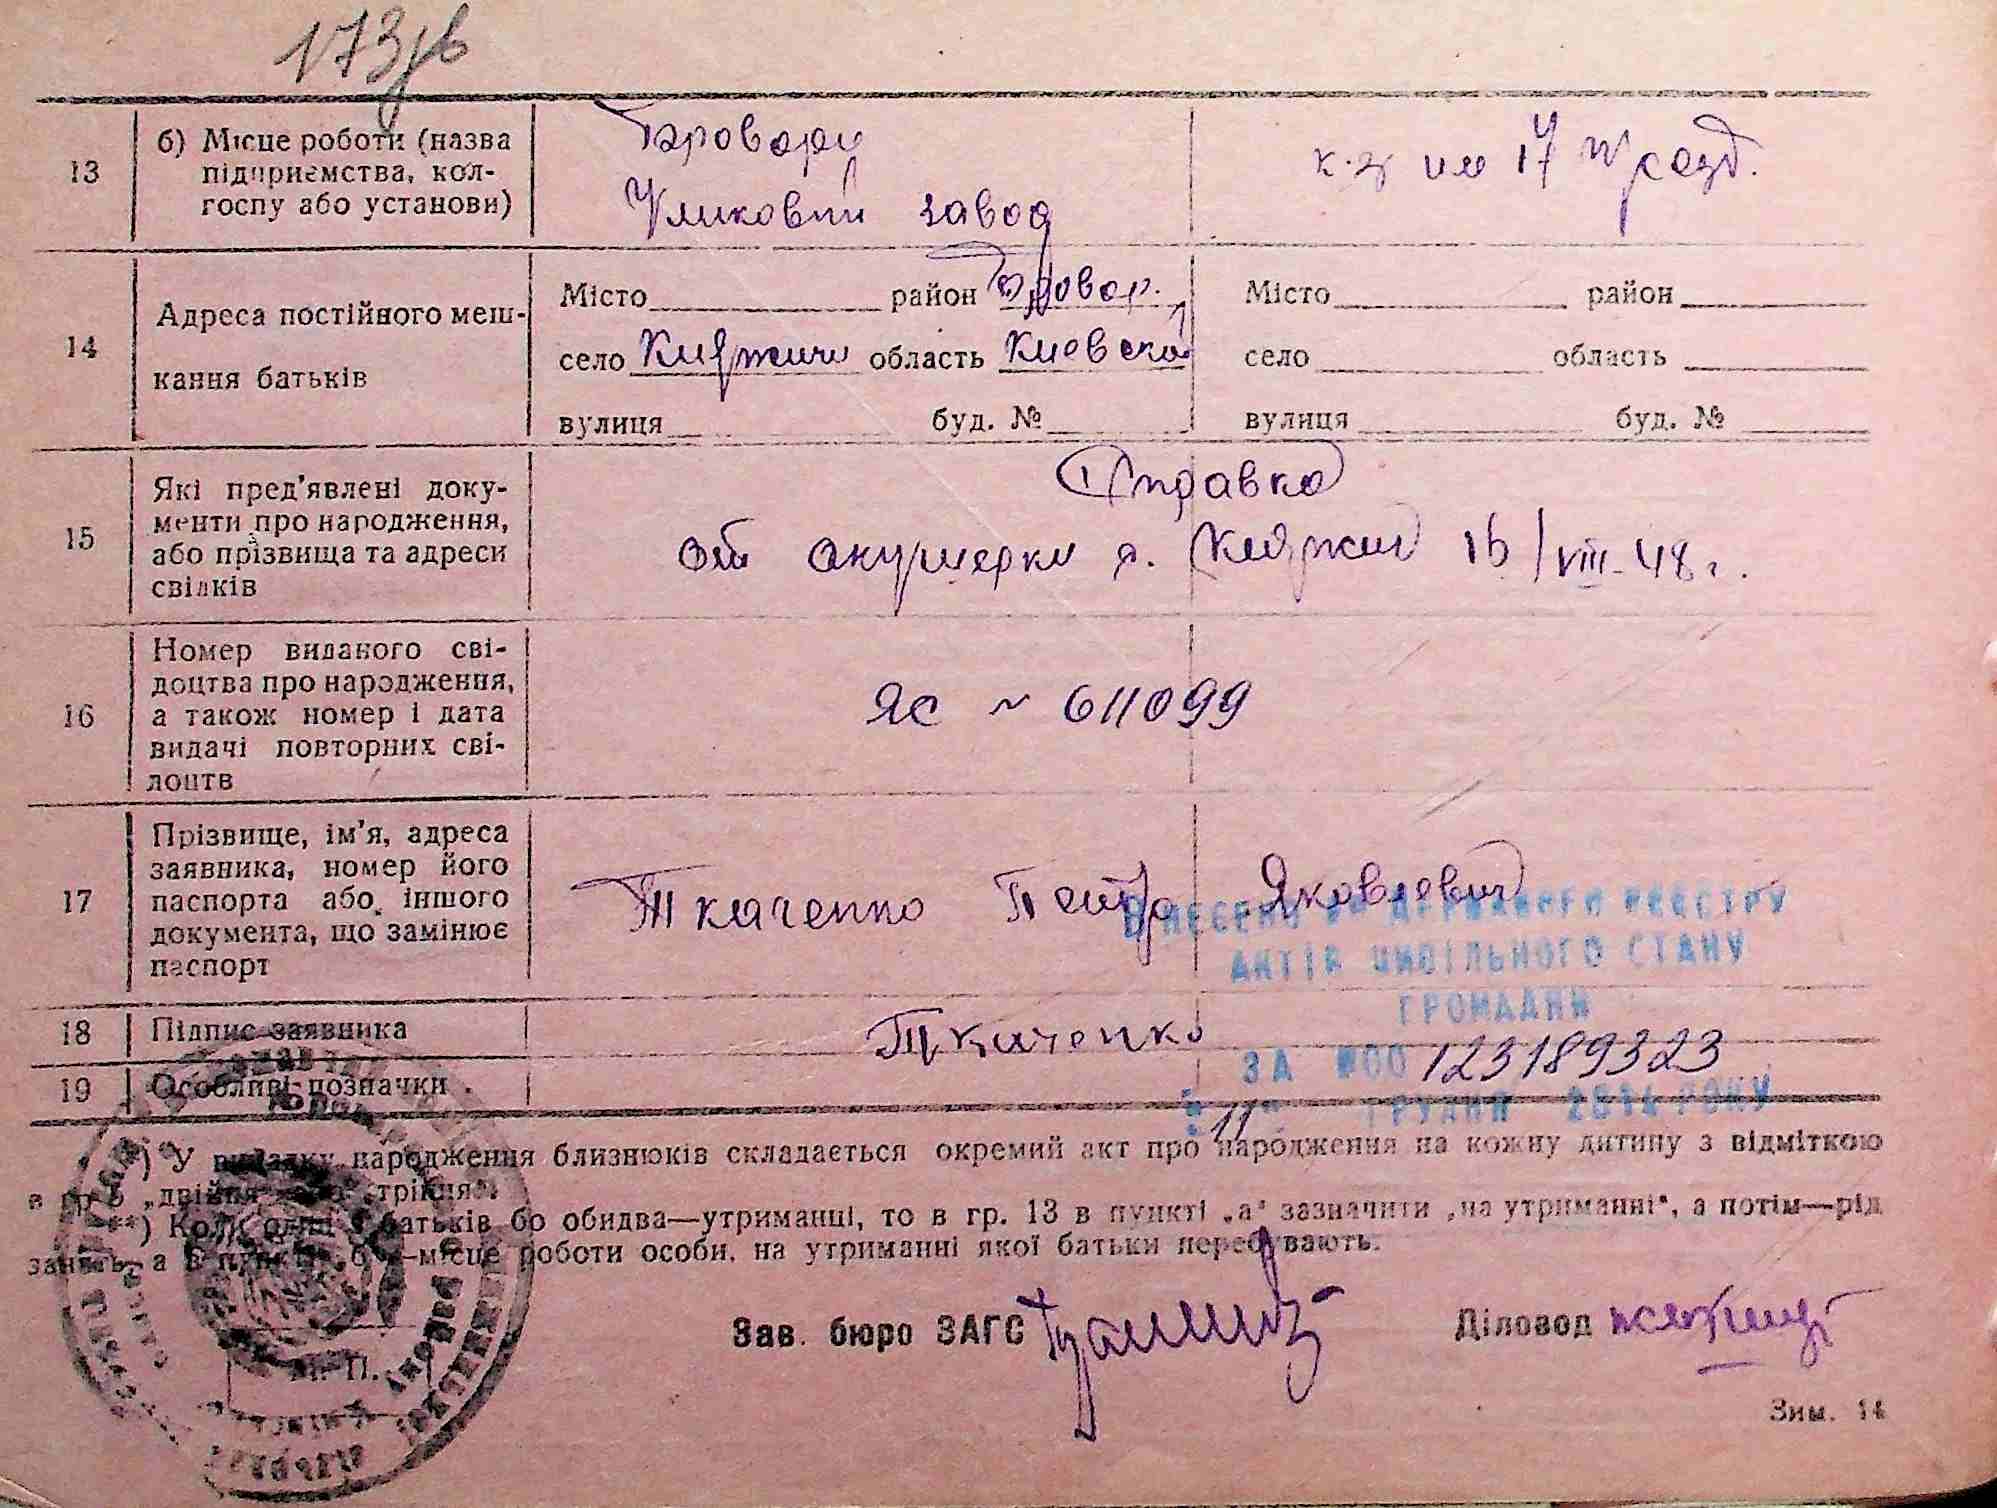 173
13
б) Місце роботи (назва
підприємства, кол-
госпу або установи)
Бровари
завод
к-з им 17 парсъезд.
14
Адреса постійного меш-
кання батьків
Місто район Бровар.
село Княжичи область Киевской
вулиця буд. №
Місто район
село область
вулиця буд. №
15
Які пред'явлені доку-
менти про народження,
або прізвища та адреси
свідків
Справка
от акушерки с. Княжич 16/VIII-48 г.
16
Номер виданого сві-
доцтва про народження,
а також номер і дата
видачі повторних сві-
доцтв
ЯС № 611099
17
Прізвище, ім'я, адреса
заявника, номер його
паспорта або іншого
документа, що замінює
паспорт
Ткаченко Петро Яковлевич
ВНЕСЕНО ДО ДЕРЖАВНОГО РЕЄСТРУ
АКТІВ ЦИВІЛЬНОГО СТАНУ
ГРОМАДЯН
18
Підпис заявника
Ткаченко
ЗА №00123189323
19
Особливі позначки
"11" ГРУДНЯ 2014 РОКУ
*) У випадку народження близнюків складається окремий акт про народження на кожну дитину з відміткою
в гр 5 „двійня" або „трійня".
**) Коли один з батьків або обидва—утриманці, то в гр. 13 в пункті „а" зазначити „на утриманні", а потім—рід
занять, а в пункті „б"—місце роботи особи, на утриманні якої батьки перебувають.
Зав. бюро ЗАГС
Діловод
М. П.
Зим. 14